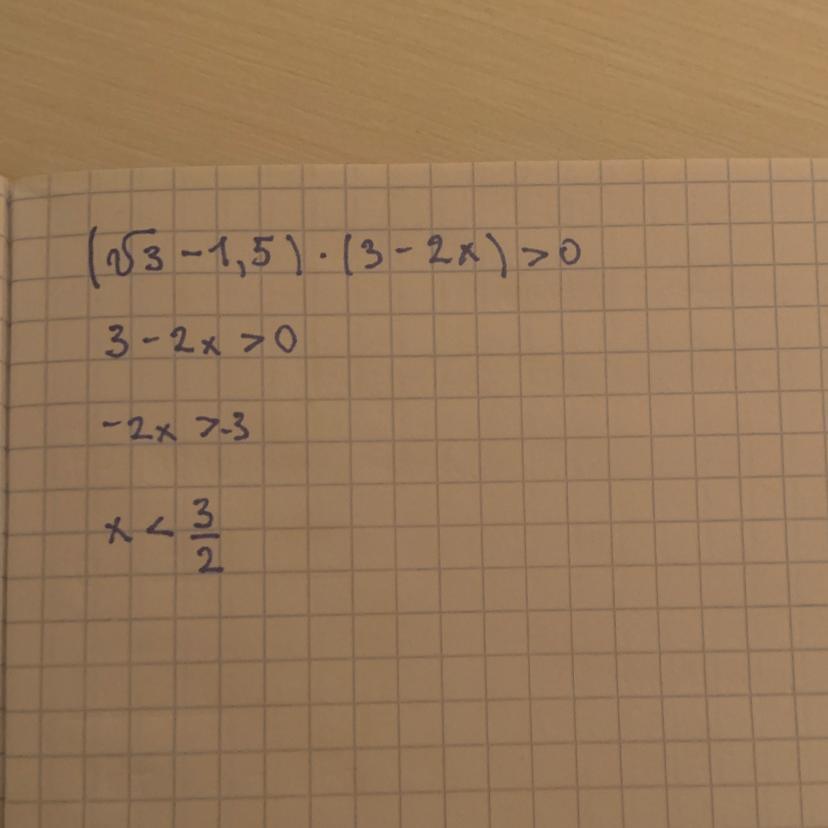 (√3 - 1,5) · (3 - 2x) > 0
3 - 2x > 0
-2x > -3
x < 3/2